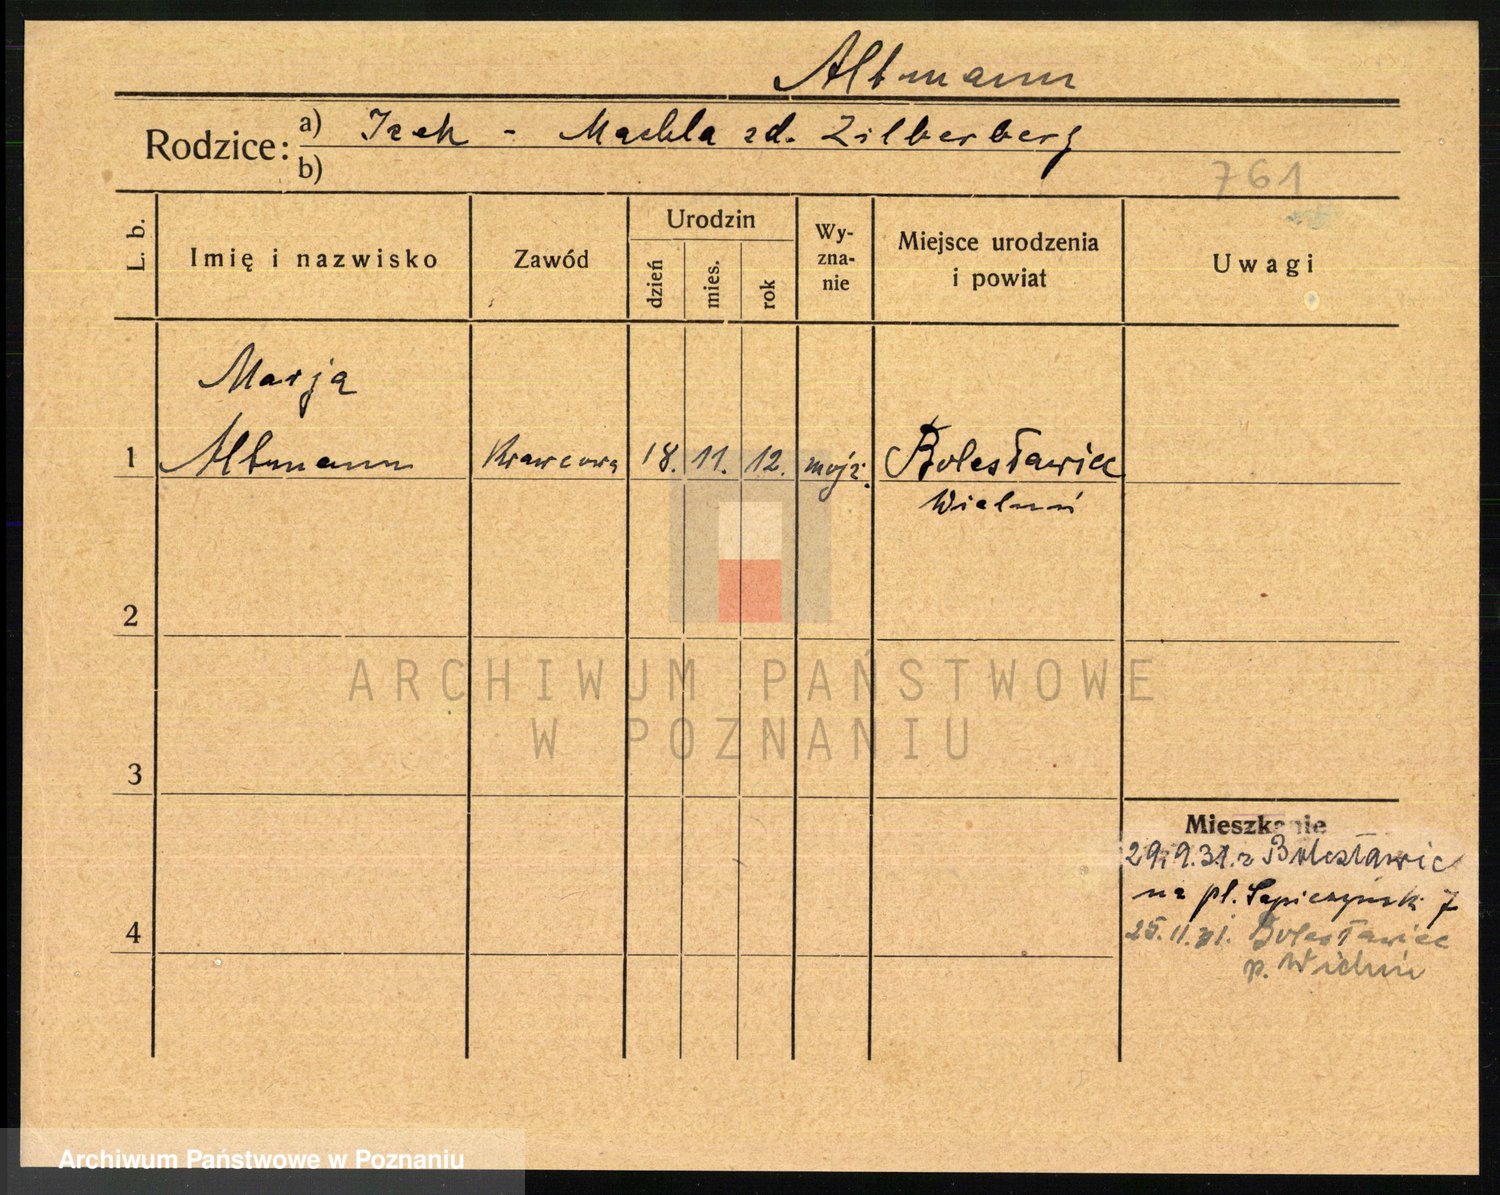 Altmann
Rodzice: a) Icek - Machla zd. Zilberberg
b)
761
L. b.
Imię i nazwisko
Zawód
Urodzin
dzień
mies.
rok
Wy-
zna-
nie
Miejsce urodzenia
i powiat
Uwagi
Marja
1 Altmann Krawcowa 18. 11. 12. mojż. Bolesławiec
Wieluń
2
ARCHIWUM PAŃSTWOWE
W POZNANIU
3
Mieszkanie
29.9.31. z Bolesławiec
na pl. Sapieżyński 7
4
25.11.31. Bolesławiec
p. Wieluń
Archiwum Państwowe w Poznaniu